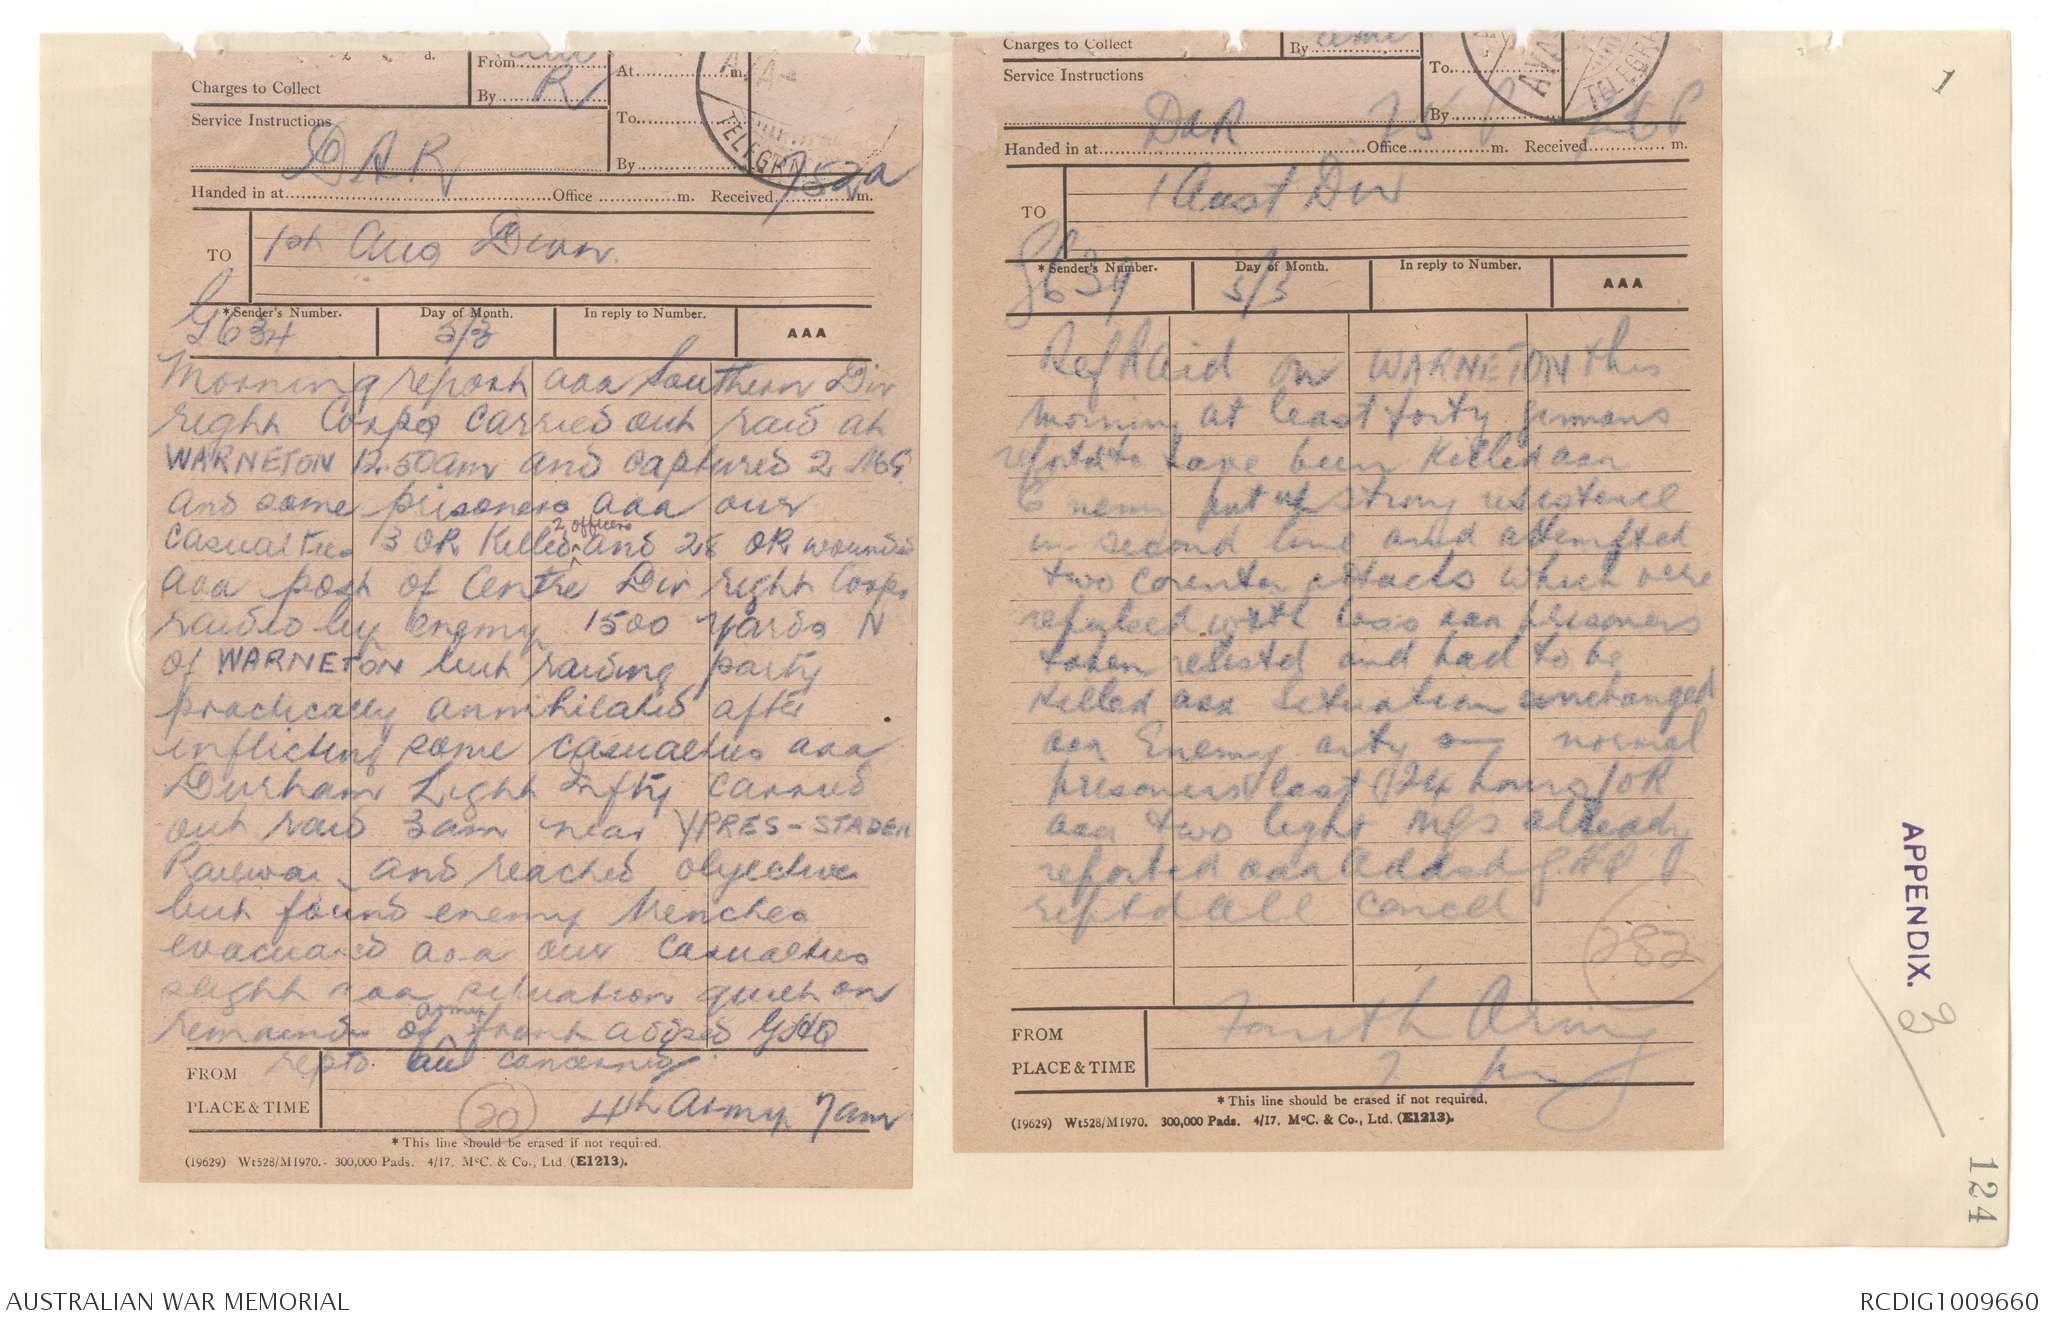 £ s. d.
Charges to Collect
From
By R
At m.
To
By
TELEGRA
Service Instructions
DAR
Handed in at Office m. Received 752a m.
TO 1st Aus Divn.
*Sender's Number. Day of Month. In reply to Number. AAA
G634 5/3
Morning report aaa Southern Div
right Corps carried out raid at
WARNETON 12.50am and captured 2 MG
and some prisoners aaa our
casualties 3 OR Killed 2 officers and 28 OR wounded
aaa post of Centre Div right Corps
raided by enemy 1500 yards N
of WARNETON but raiding party
practically annihilated after
inflicting some casualties aaa
Durham Light Infty carried
out raid 3am near YPRES-STADEN
Railway and reached objective
but found enemy trenches
evacuated aaa our casualties
slight aaa situation quiet on
remainder of army front adsd GHQ
reptd all concerned
FROM
PLACE & TIME 4th Army 7am
20
*This line should be erased if not required.
(19629) Wt528/M1970.- 300,000 Pads. 4/17. McC. & Co., Ltd. (E1213).
Charges to Collect
By
Service Instructions
To
By
TELEGRA
DaR
Handed in at Office m. Received m.
TO 1 Aust Div
*Sender's Number. Day of Month. In reply to Number. AAA
G639 5/3
Ref Raid on WARNETON this
morning at least forty germans
reptd to have been killed aaa
Enemy put up strong resistence
in second line and attempted
two counter attacks which were
repulsed with loss aaa prisoners
taken resistd and had to be
killed aaa Situation unchanged
aaa Enemy arty normal
prisoners last 24 hours 1 OR
aaa two light MGs already
reported aaa Addsd GHQ
reptd all concd
282
FROM
PLACE & TIME
Fourth Army
7 pm
*This line should be erased if not required.
(19629) Wt528/M1970. 300,000 Pads. 4/17. McC. & Co., Ltd. (E1213).
1
APPENDIX. 3
124
AUSTRALIAN WAR MEMORIAL
RCDIG1009660